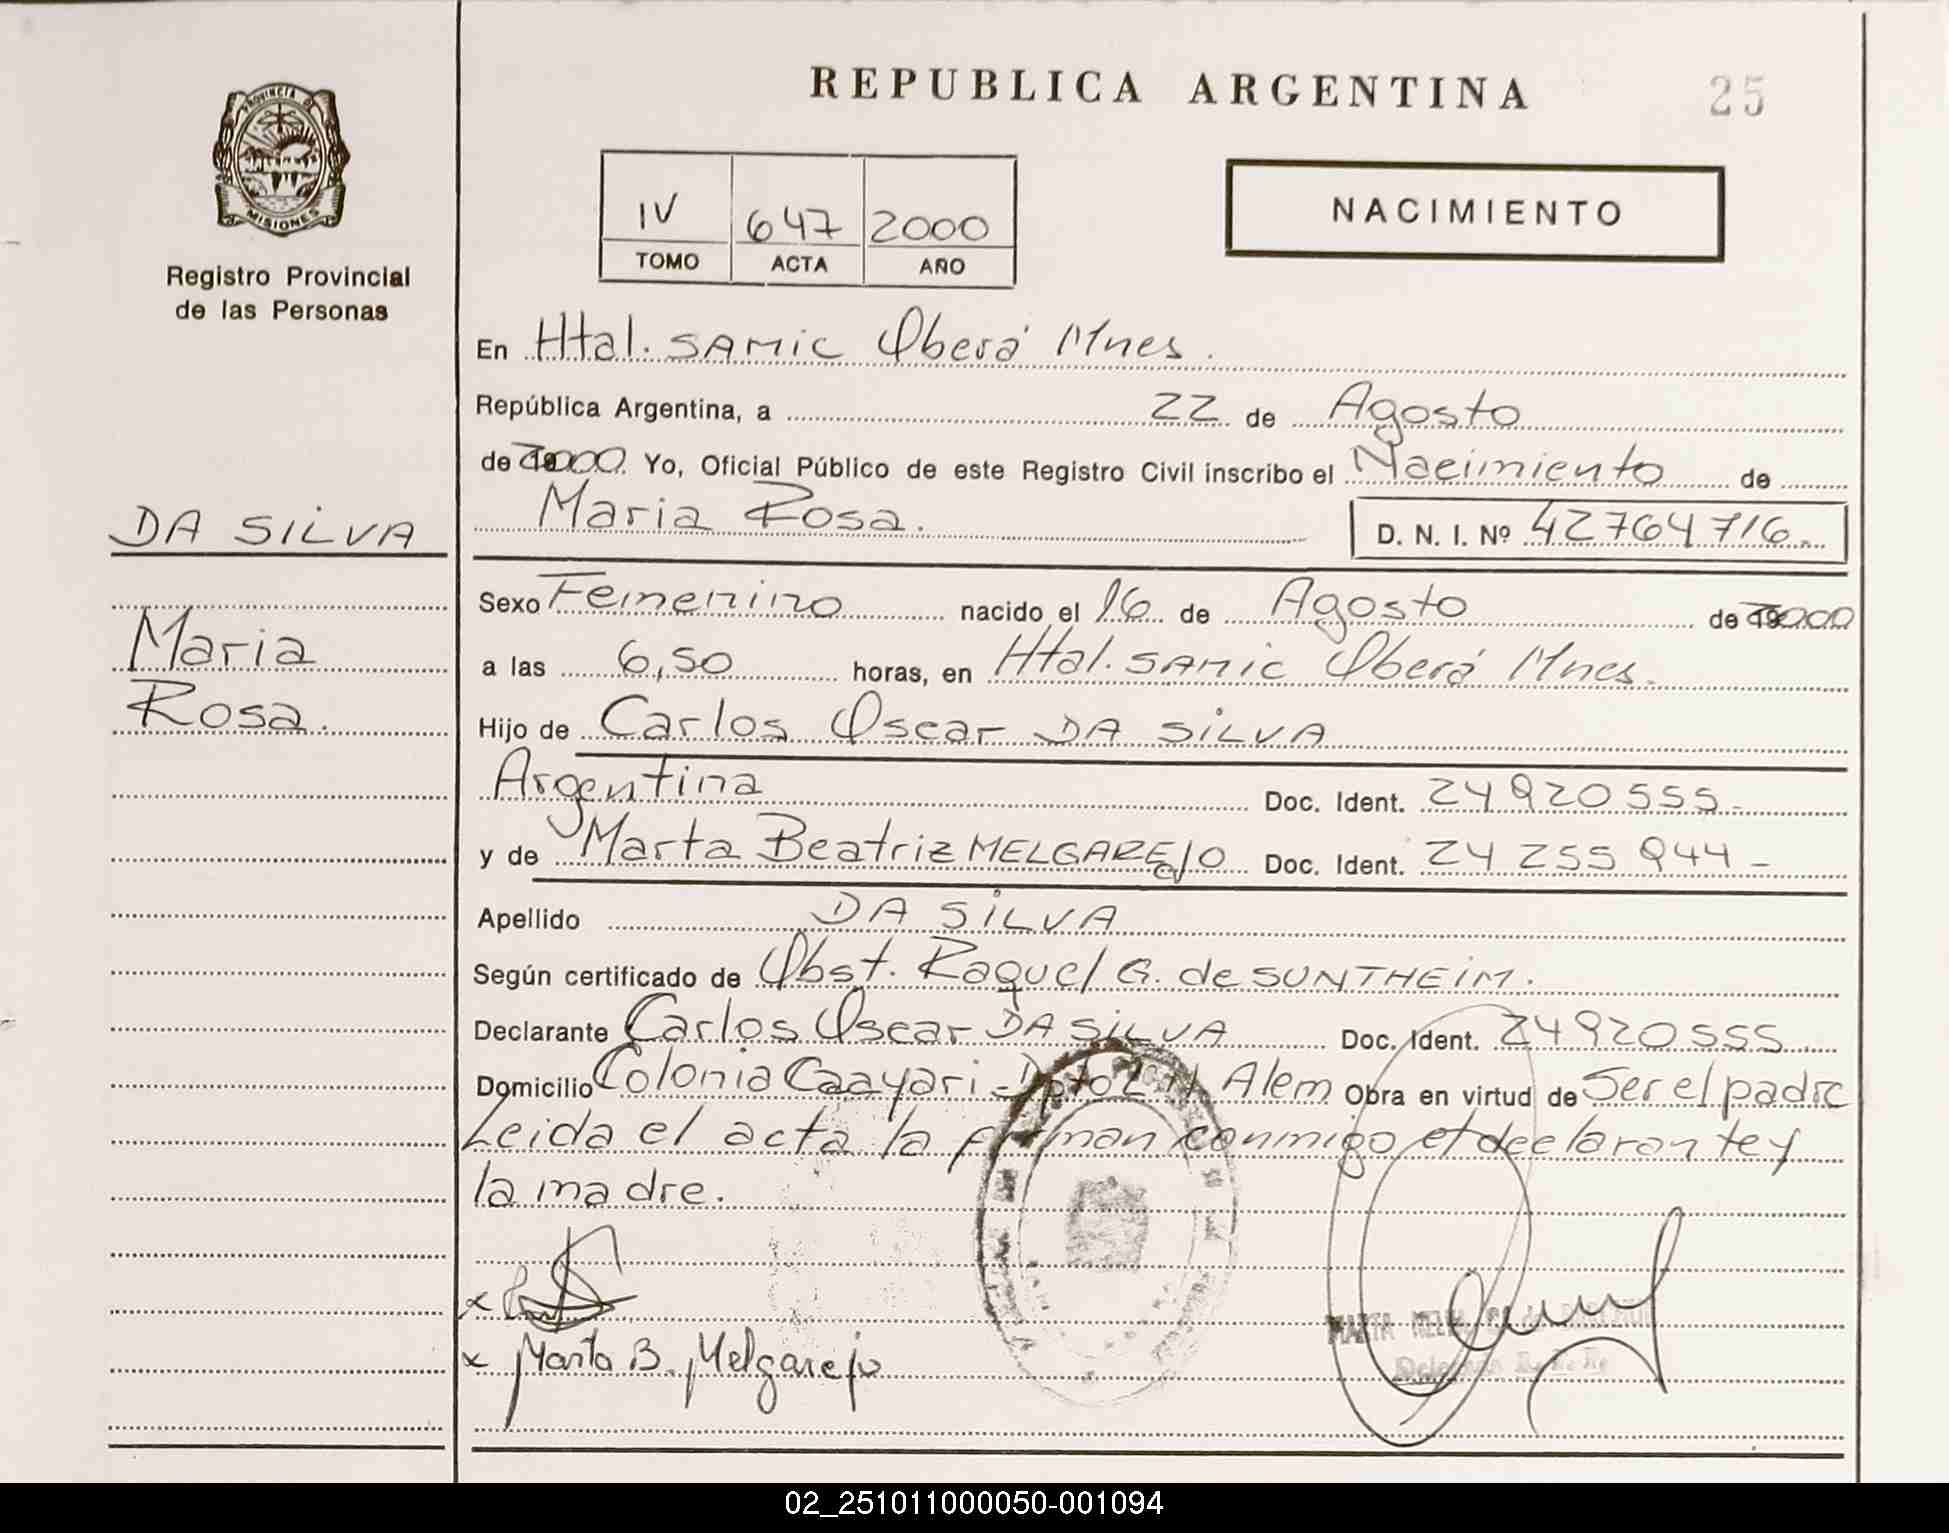 REPUBLICA ARGENTINA
25
PROVINCIA DE
MISIONES
Registro Provincial
de las Personas
IV 647 2000
TOMO ACTA AÑO
NACIMIENTO
En Htal. SAMIC Oberá Mnes.
República Argentina, a 22 de Agosto
de 2000 Yo, Oficial Público de este Registro Civil inscribo el Nacimiento de
Maria Rosa. D. N. I. Nº 42764716
DA SILVA
Maria
Rosa.
Sexo Femenino nacido el 16 de Agosto de 2000
a las 6,50 horas, en Htal. SAMIC Oberá Mnes.
Hijo de Carlos Oscar DA SILVA
Argentina Doc. Ident. 24920555-
y de Marta Beatriz MELGAREJO Doc. Ident. 24 255 944 -
Apellido DA SILVA
Según certificado de Obst. Raquel G. de SUNTHEIM.
Declarante Carlos Oscar DA SILVA Doc. Ident. 24920555
Domicilio Colonia Caayari - Dpto L N Alem Obra en virtud de Ser el padre
Leida el acta la firman conmigo el declarante y
la madre.
x
x Marta B. Melgarejo
MARTA
02_251011000050-001094